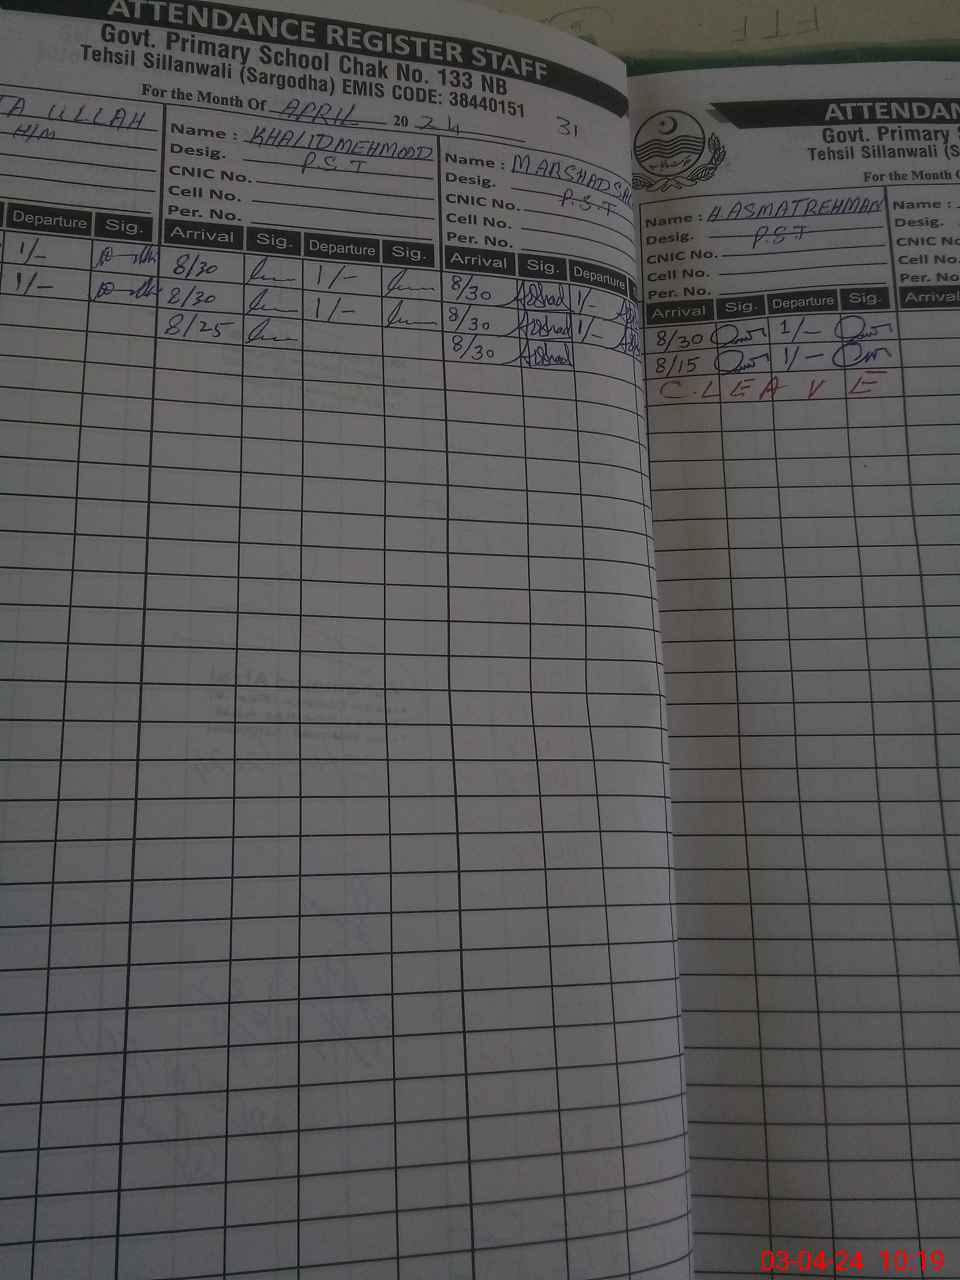 ATTENDANCE REGISTER STAFF
Govt. Primary School Chak No. 133 NB
Tehsil Sillanwali (Sargodha) EMIS CODE: 38440151
For the Month Of APRIL 2024
31
TA ULLAH
H/M
Name : KHALID MEHMOOD
Desig. P.S.T
CNIC No.
Cell No.
Per. No.
Name : M ARSHAD
Desig. P.S.T
CNIC No.
Cell No.
Per. No.
Departure Sig. Arrival Sig. Departure Sig. Arrival Sig. Departure
1/- 8/30 1/- 8/30 Arshad 1/-
1/- 8/30 1/- 8/30 Arshad 1/-
8/25 8/30 Arshad
ATTENDAN
Govt. Primary S
Tehsil Sillanwali (S
For the Month O
Name : H. ASMATREHMAN
Desig. P.S.T
CNIC No.
Cell No.
Per. No.
Name :
Desig.
CNIC No
Cell No.
Per. No.
Arrival Sig. Departure Sig. Arrival
8/30 1/-
8/15 1/-
C. LEAVE
03-04-24 10:19